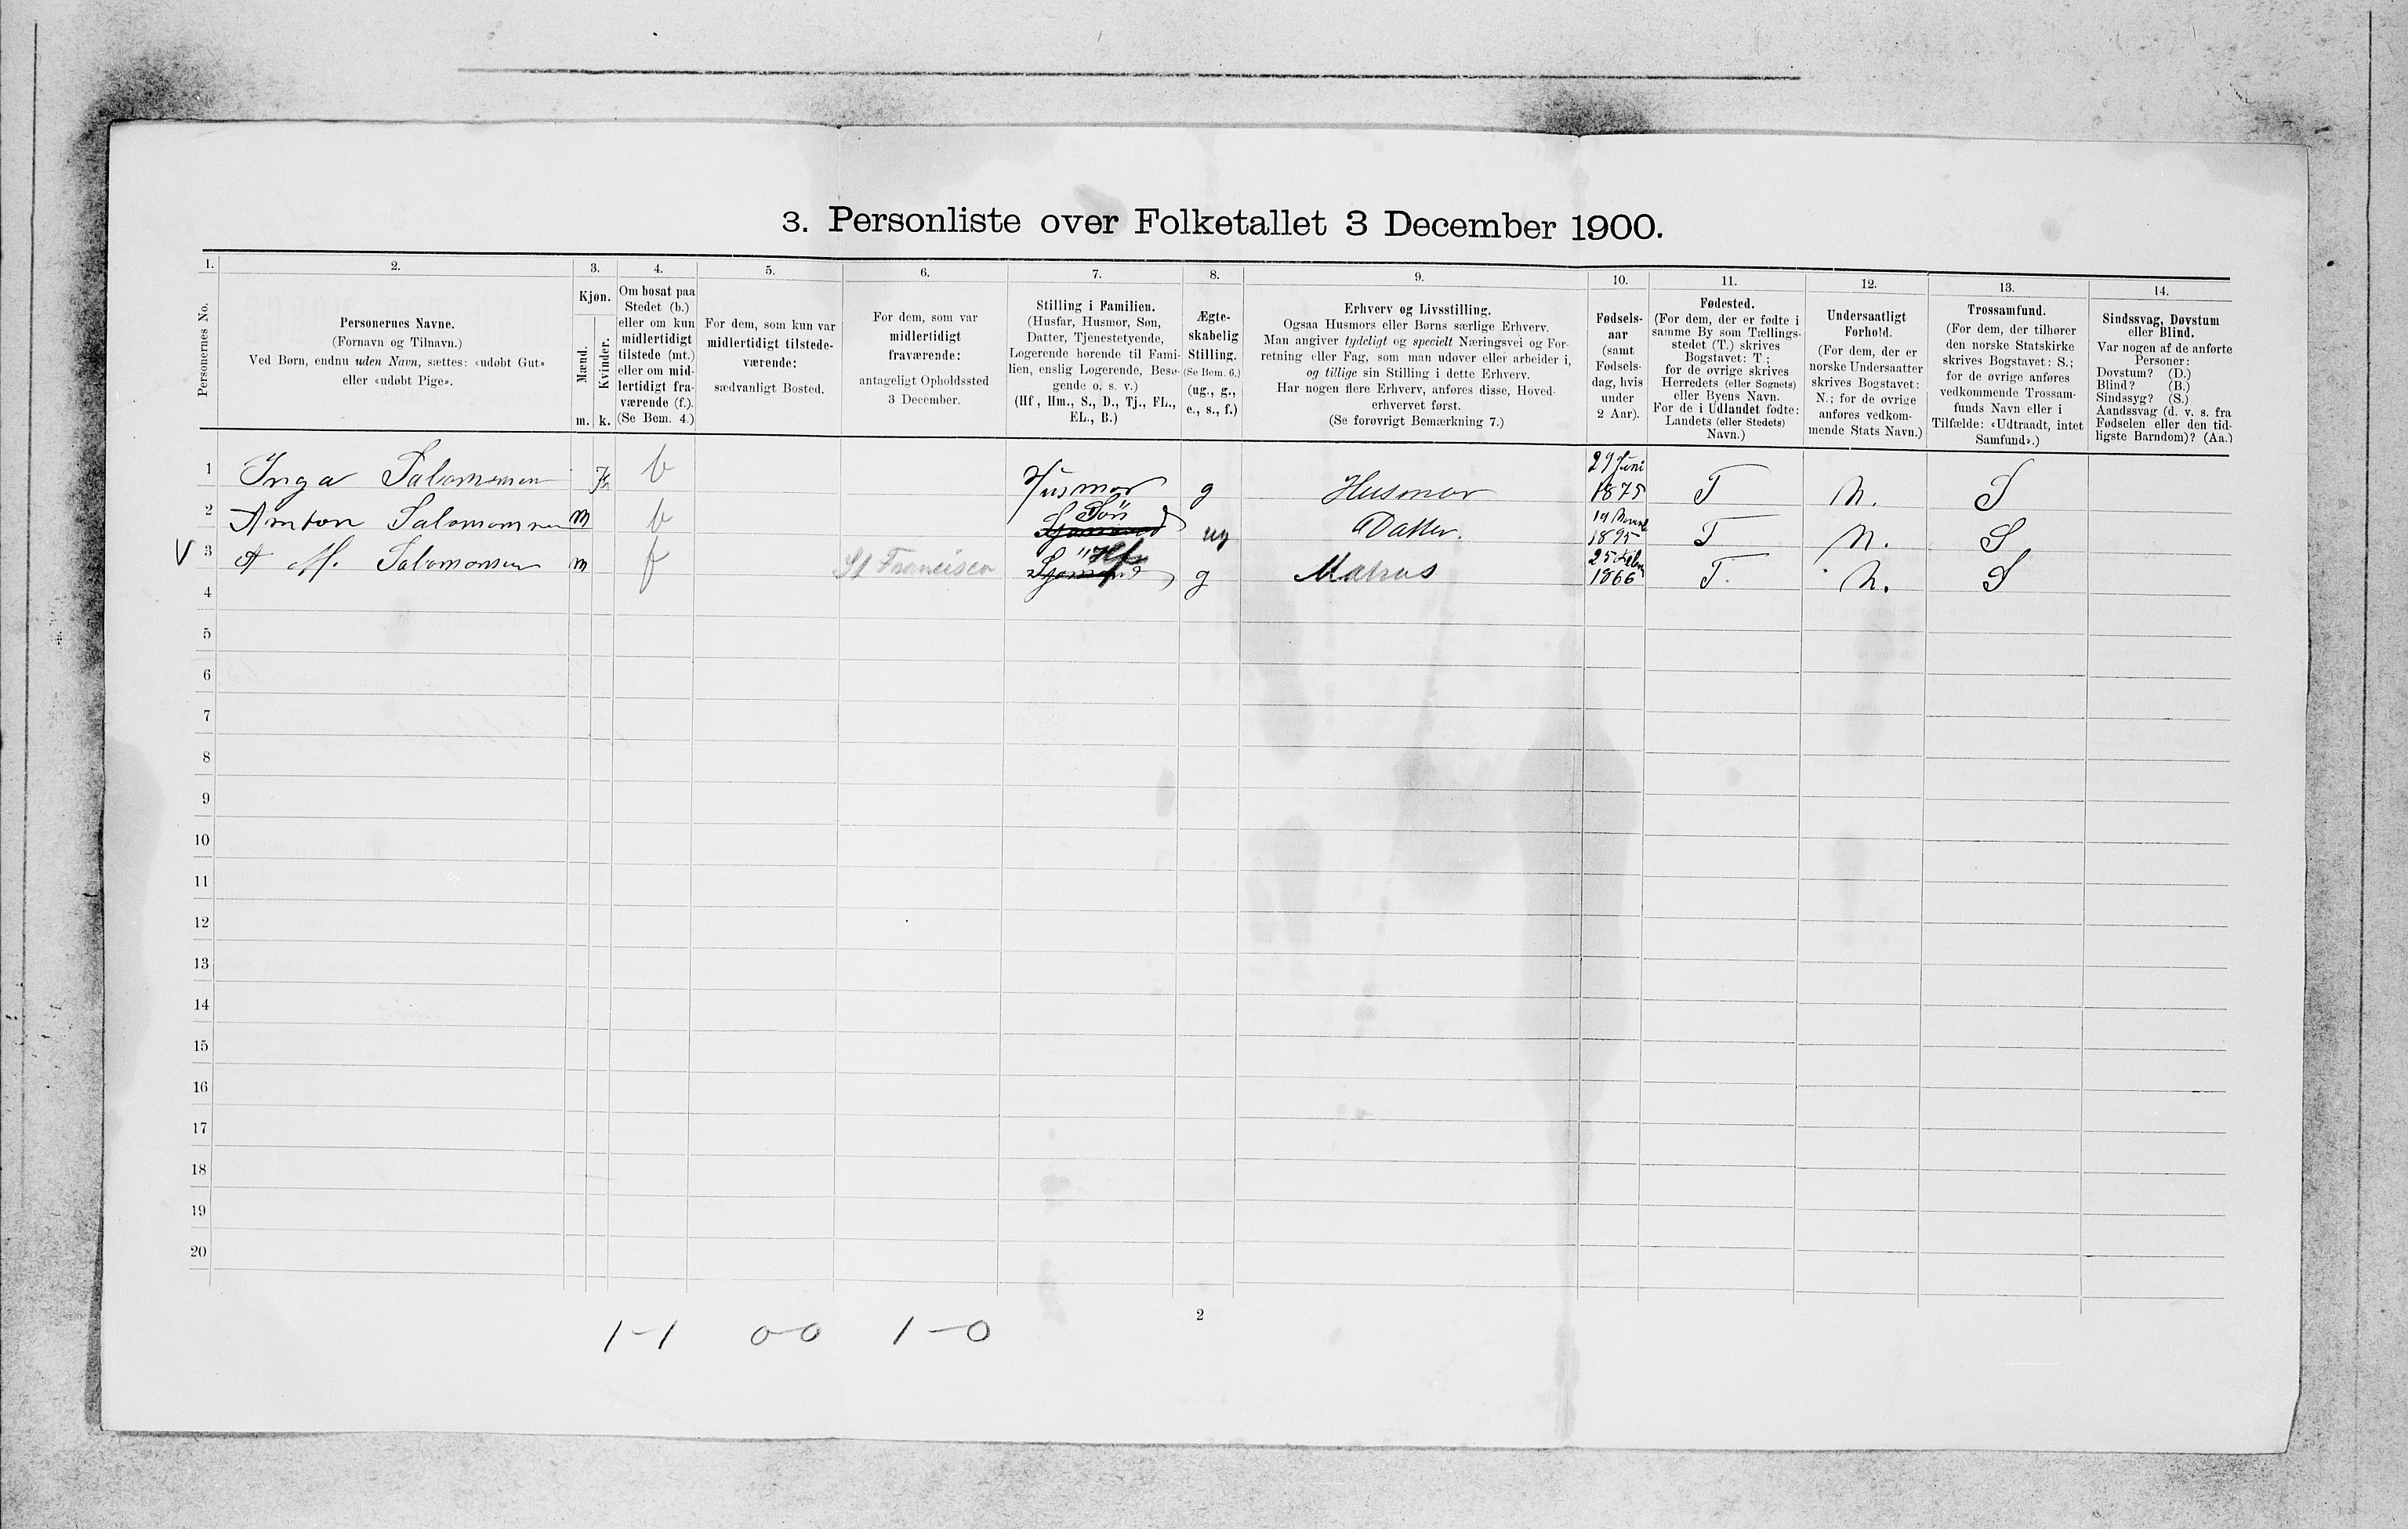 3. Personliste over Folketallet 3 December 1900.
1. 2. 3. 4. 5. 6. 7. 8. 9. 10. 11. 12. 13. 14.
Personernes No.
Personernes Navne.
(Fornavn og Tilnavn.)
Ved Børn, endnu uden Navn, sættes: «udøbt Gut»
eller «udøbt Pige».
Kjøn.
Mænd.
m.
Kvinder.
k.
Om bosat paa
Stedet (b.)
eller om kun
midlertidigt
tilstede (mt.)
eller om mid-
lertidigt fra-
værende (f.).
(Se Bem. 4.)
For dem, som kun var
midlertidigt tilstede-
værende:
sædvanligt Bosted.
For dem, som var
midlertidigt
fraværende:
antageligt Opholdssted
3 December.
Stilling i Familien.
(Husfar, Husmor, Søn,
Datter, Tjenestetyende,
Logerende hørende til Fami-
lien, enslig Logerende, Besø-
gende o. s. v.)
(Hf, Hm., S., D., Tj., FL.,
EL., B.)
Ægte-
skabelig
Stilling.
(Se Bem. 6.)
(ug., g.,
e., s., f.)
Erhverv og Livsstilling.
Ogsaa Husmors eller Børns særlige Erhverv.
Man angiver tydeligt og specielt Næringsvei og For-
retning eller Fag, som man udover eller arbeider i,
og tillige sin Stilling i dette Erhverv.
Har nogen flere Erhverv, anføres disse, Hoved-
erhvervet først.
(Se forøvrigt Bemærkning 7.)
Fødsels-
aar
(samt
Fødsels-
dag, hvis
under
2 Aar).
Fødested.
(For dem, der er fødte i
samme By som Tællings-
stedet (T.) skrives
Bogstavet: T.;
for de øvrige skrives
Herredets (eller Sognets)
eller Byens Navn.
For de i Udlandet fødte:
Landets (eller Stedets)
Navn.)
Undersaatligt
Forhold.
(For dem, der er
norske Undersaatter
skrives Bogstavet:
N.; for de øvrige
anføres vedkom-
mende Stats Navn.)
Trossamfund.
(For dem, der tilhører
den norske Statskirke
skrives Bogstavet: S.;
for de øvrige anføres
vedkommende Trossam-
funds Navn eller i
Tilfælde: «Udtraadt, intet
Samfund».)
Sindssvag, Døvstum
eller Blind.
Var nogen af de anførte
Personer:
Døvstum? (D.)
Blind? (B.)
Sindssyg? (S.)
Aandssvag (d. v. s. fra
Fødselen eller den tid-
ligste Barndom)? (Aa.)
1 Inga Salomonsen k b Husmor g Husmor 29 Juni 1875 T N. S
2 Anton Salomonsen m b Søn ug Datter. 1895 T N. S
V 3 A M. Salomonsen m f St Francisco Hf g Matros 25 Febr 1866 T. N. S
4
5
6
7
8
9
10
11
12
13
14
15
16
17
18
19
20
1-1 0-0 1-0
2